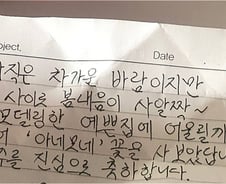 oject. Date
직은 차가운 바람이지만
사이로 봄내음이 사알짝~
모델링한 예쁜집에 어울릴까
'아네모네' 꽃을 사보았답니
를 진심으로 축하합니다.